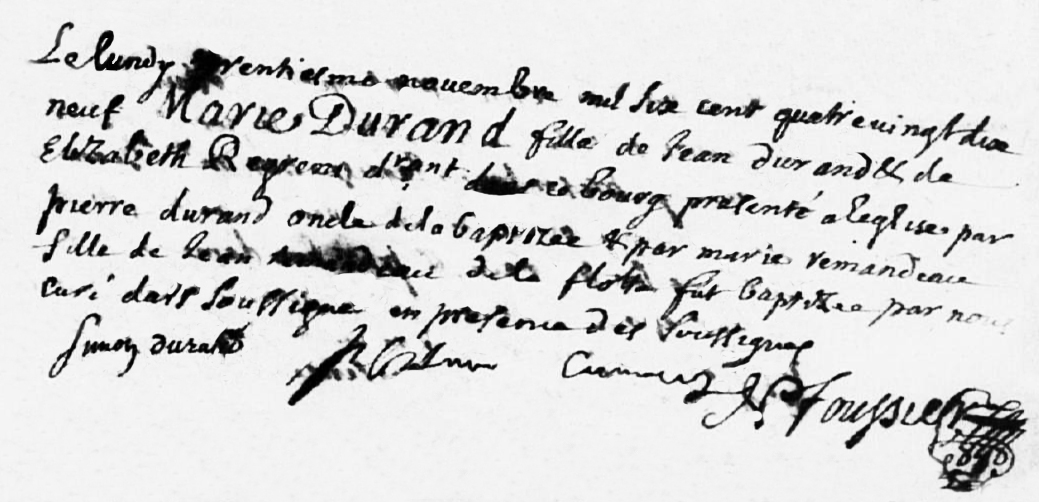 Le lundy trentiesme novembre mil six cent quatre vingt dix
neuf Marie Durand fille de Jean durand & de
Elizabeth d^t en ce bourg presenté a leglise par
pierre durand oncle de la baptizee & par marie remandeau
fille de Jean remandeau de la flotte fut baptizee par nous
curé dars soussigné en presence des soussignes
Simon durand